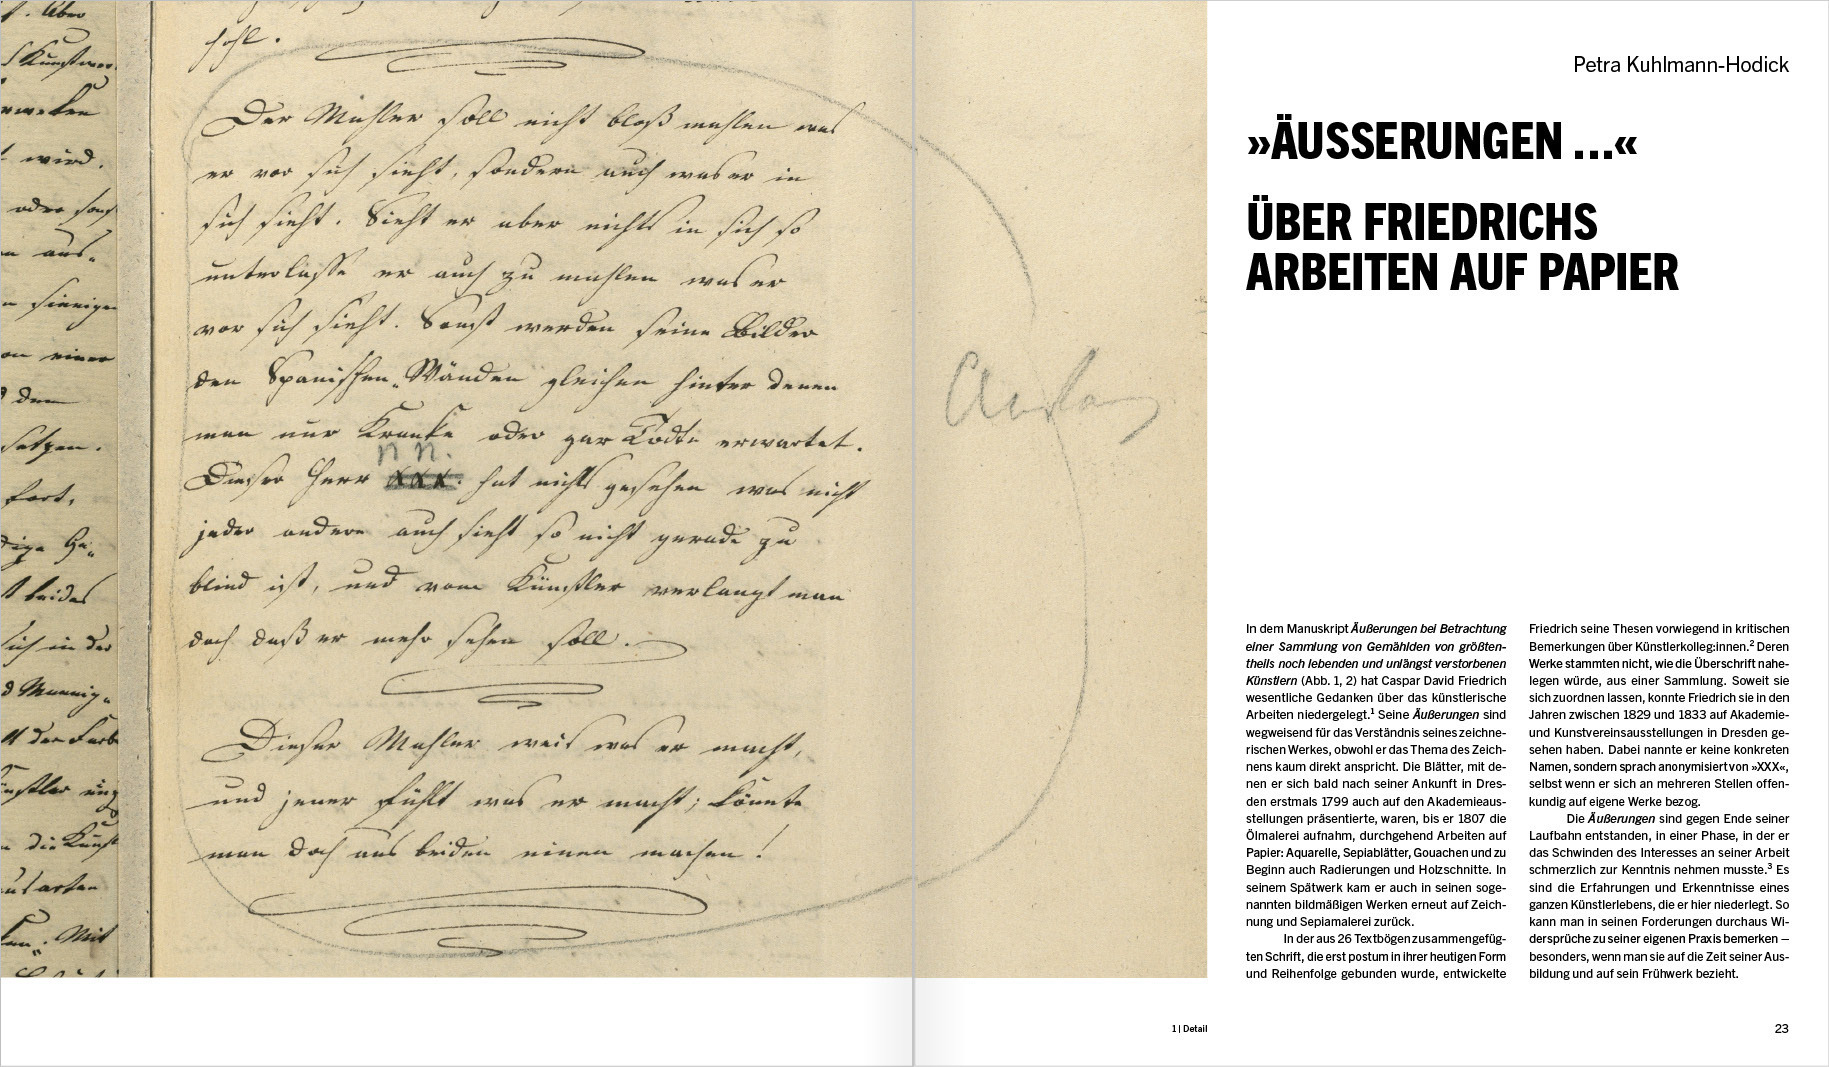 t. Aber
Kunstwer-
wird.
oder sonst
aus-
sinnigen
einer
dem
setzen.
fort,
Ge-
beides
sich in der
Mannig-
der Farb
die Kunst
Mit
wohl.
Der Mahler soll nicht bloß mahlen was
er vor sich sieht, sondern auch was er in
sich sieht. Sieht er aber nichts in sich so
unterlasse er auch zu mahlen was er
vor sich sieht. Sonst werden seine Bilder
den Spanischen-Wänden gleichen hinter denen
man nur Kranke oder gar Todte erwartet.
n n.
Dieser Herr XXX. hat nichts gesehen was nicht
jeder andere auch sieht so nicht gerade zu
blind ist, und vom Künstler verlangt man
doch daß er mehr sehen soll.
Dieser Mahler weis was er macht,
und jener fühlt was er macht; könnte
man doch aus beiden einen machen!
1 | Detail
Petra Kuhlmann-Hodick
»ÄUSSERUNGEN ...«
ÜBER FRIEDRICHS
ARBEITEN AUF PAPIER
In dem Manuskript Äußerungen bei Betrachtung
einer Sammlung von Gemählden von größten-
theils noch lebenden und unlängst verstorbenen
Künstlern (Abb. 1, 2) hat Caspar David Friedrich
wesentliche Gedanken über das künstlerische
Arbeiten niedergelegt.¹ Seine Äußerungen sind
wegweisend für das Verständnis seines zeichne-
rischen Werkes, obwohl er das Thema des Zeich-
nens kaum direkt anspricht. Die Blätter, mit de-
nen er sich bald nach seiner Ankunft in Dres-
den erstmals 1799 auch auf den Akademieaus-
stellungen präsentierte, waren, bis er 1807 die
Ölmalerei aufnahm, durchgehend Arbeiten auf
Papier: Aquarelle, Sepiablätter, Gouachen und zu
Beginn auch Radierungen und Holzschnitte. In
seinem Spätwerk kam er auch in seinen soge-
nannten bildmäßigen Werken erneut auf Zeich-
nung und Sepiamalerei zurück.
In der aus 26 Textbögen zusammengefüg-
ten Schrift, die erst postum in ihrer heutigen Form
und Reihenfolge gebunden wurde, entwickelte
Friedrich seine Thesen vorwiegend in kritischen
Bemerkungen über Künstlerkolleg:innen.² Deren
Werke stammten nicht, wie die Überschrift nahe-
legen würde, aus einer Sammlung. Soweit sie
sich zuordnen lassen, konnte Friedrich sie in den
Jahren zwischen 1829 und 1833 auf Akademie-
und Kunstvereinsausstellungen in Dresden ge-
sehen haben. Dabei nannte er keine konkreten
Namen, sondern sprach anonymisiert von »XXX«,
selbst wenn er sich an mehreren Stellen offen-
kundig auf eigene Werke bezog.
Die Äußerungen sind gegen Ende seiner
Laufbahn entstanden, in einer Phase, in der er
das Schwinden des Interesses an seiner Arbeit
schmerzlich zur Kenntnis nehmen musste.³ Es
sind die Erfahrungen und Erkenntnisse eines
ganzen Künstlerlebens, die er hier niederlegt. So
kann man in seinen Forderungen durchaus Wi-
dersprüche zu seiner eigenen Praxis bemerken –
besonders, wenn man sie auf die Zeit seiner Aus-
bildung und auf sein Frühwerk bezieht.
23